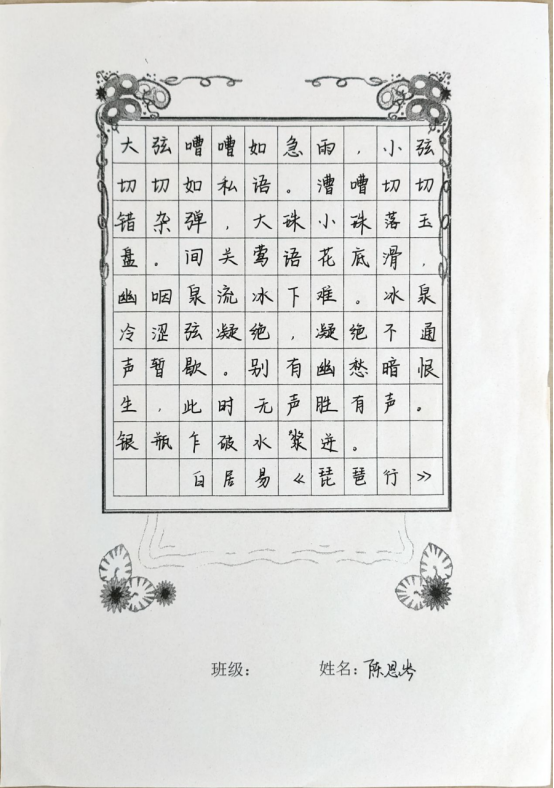 大弦嘈嘈如急雨，小弦
切切如私语。漕嘈切切
错杂弹，大珠小珠落玉
盘。间关莺语花底滑，
幽咽泉流冰下难。冰泉
冷涩弦凝绝，凝绝不通
声暂歇。别有幽愁暗恨
生，此时无声胜有声。
银瓶乍破水浆迸。
白居易《琵琶行》
班级： 姓名：陈恩岑